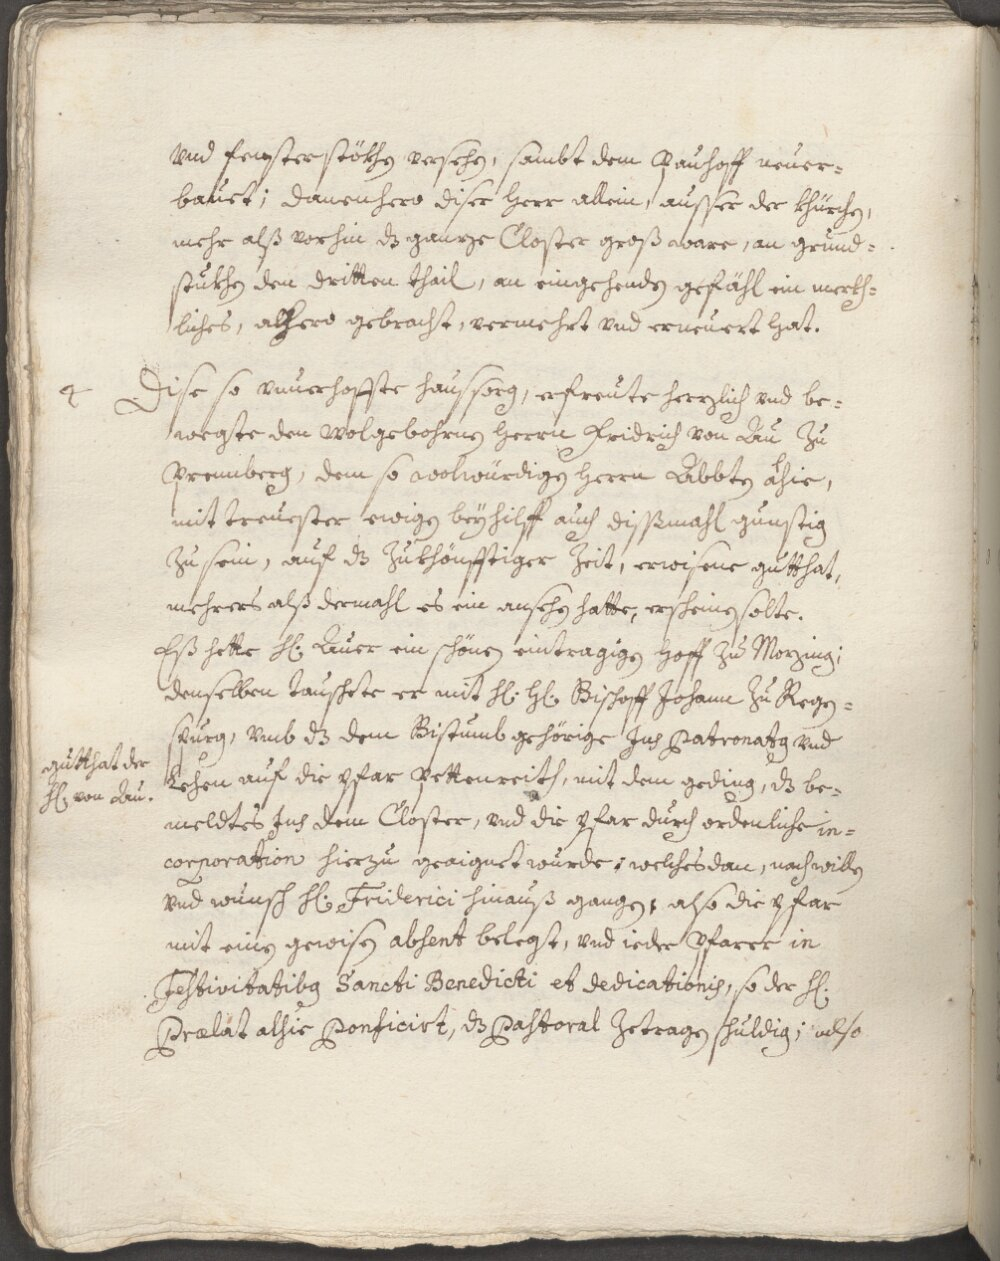 vnd fensterstökhen versehen, sambt dem Pauhoff neuer=
bauet; danenhero diser Herr allein, ausser der Khürchen,
mehr alß vorhin dz gantze Closter groß ware, an grund=
stukhen den dritten thail, an eingehenden gefähl ein merkh=
liches, alhero gebracht, vermehrt vnd erneuert hat.
4 Dise so vnuerhoffte haussorg, erfreute herzlich vnd be=
wegte den Wolgebohrnen Herrn Fridrich von Au zu
Prennberg, dem so wolwürdigen Herrn Abbten alhie,
mit treuester ewigen beyhilff auch dissmahl gunstig
zu sein, auf dz zukhönfftiger Zeit, erwisene gutthat,
mehrers alß dermahl es ein ansehen hatte, erscheinen solte.
Eß hette H: Auer ein schönen eintragigen Hoff zu Morzing;
denselben tauschete er mit H: H: Bischoff Johann zu Regen=
spurg, vmb dz dem Bistumb gehörige Jus Patronatus vnd
gutthat der
H: von Au.
Lehen auf die pfar Pettenreith, mit dem geding, dz be=
meldtes Jus dem Closter, vnd die pfar durch ordenliche in=
corporation hierzu geaignet wurde; welches dan, nach willen
vnd wunsch H: Friderici hinauß gangen; also die pfar
mit einen gewisen absent belegt, vnd ieder Pfarer in
Festivitatibus Sancti Benedicti et dedicationis, so der H:
Prælat alhie Pontificirt, dz Pastoral zetragen schuldig; also